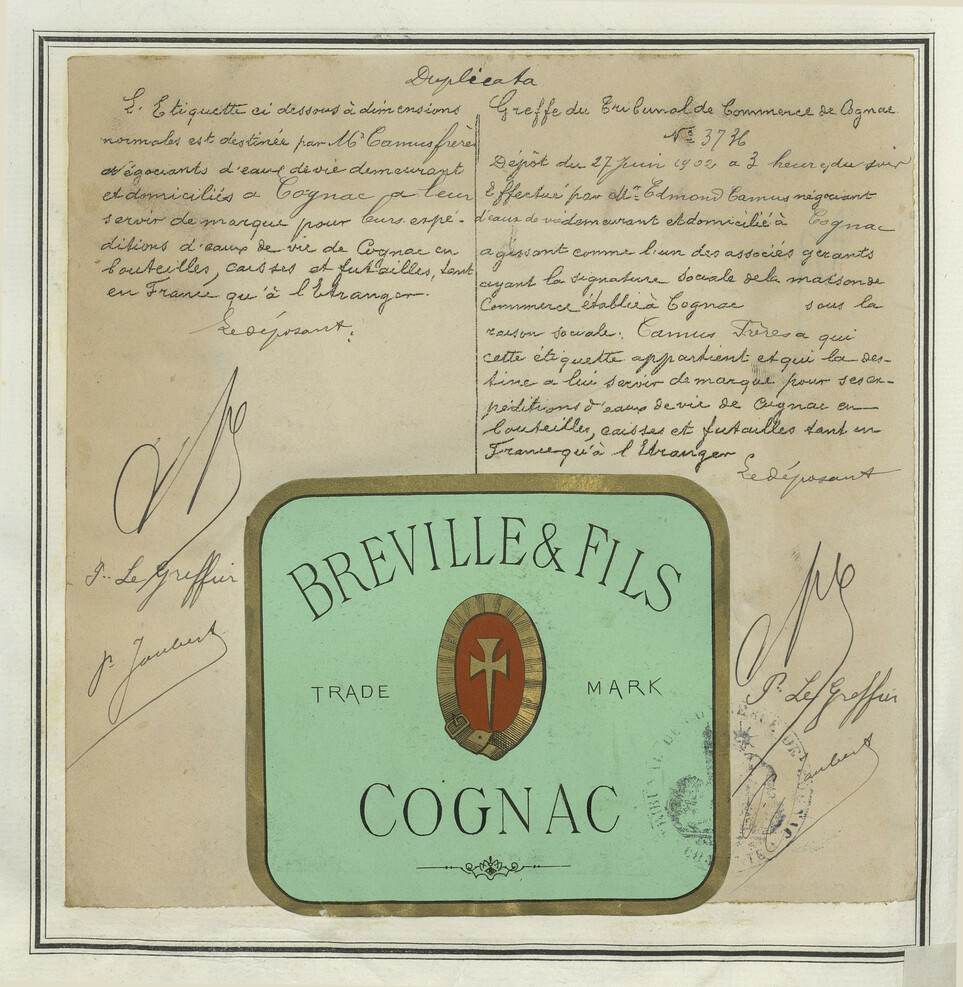 Duplicata
L'Etiquette ci dessous à dimensions
normales est destinée par Mrs Camus frères
négociants d'eaux de vie demeurant
et domiciliés a Cognac a leur
servir de marque pour leurs expé-
ditions d'eaux de vie de Cognac en
bouteilles, caisses et futailles, tant
en France qu'à l'Etranger.
Le déposant.
Pr Le Greffier
Joubert
Greffe du Tribunal de Commerce de Cognac
No 3736
Dépôt du 27 Juin 1902 a 3 heures du soir
Effectué par Mr Edmond Camus négociant
d'eaux de vie demeurant et domicilié à Cognac
agissant comme l'un des associés gérants
ayant la signature sociale de la maison de
Commerce établie à Cognac sous la
raison sociale: Camus Frères a qui
cette étiquette appartient et qui la des-
tine a lui servir de marque pour ses ex-
péditions d'eaux de vie de Cognac en
bouteilles, caisses et futailles tant en
France qu'à l'Etranger
Le déposant
Pr Le Greffier
Joubert
BREVILLE & FILS
TRADE MARK
COGNAC